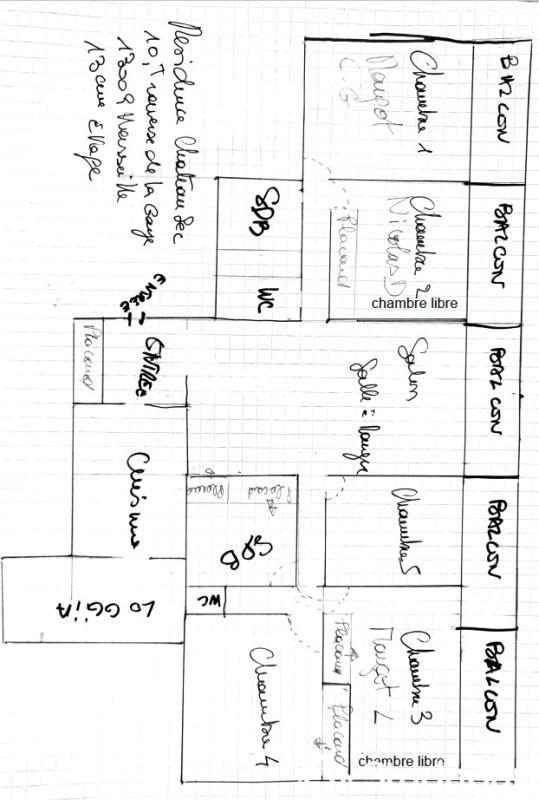 Résidence Chateau Sec
10, Traverse de la Gaye
13009 Marseille
13eme Etage
BALCON
Chambre 1
Margot
BALCON
Chambre 2
Nicolas D
Placard
chambre libre
SDB
WC
BALCON
Salon
Salle à Manger
ENTREE
ENTREE
Placard
BALCON
Chambre 5
Placard
Placard
SDB
Cuisine
WC
LOGGIA
BALCON
Chambre 3
Margot L
Placard
Placard
chambre libre
Chambre 4